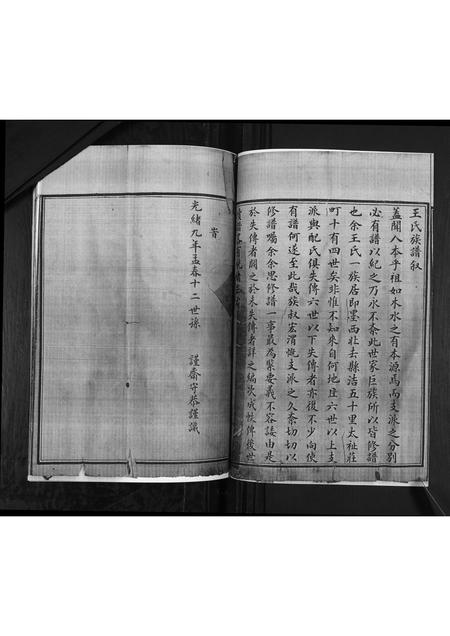 王氏族譜叙
蓋聞人本乎祖如木水之有本源焉而支派之分別
必有譜以紀之乃永不紊此世家巨族所以皆修譜
也余王氏一族居即墨西北去縣治五十里太祉莊
可十有四世矣非惟不知來自何地且六世以上支
派與配氏俱失傳六世以下失傳者亦復不少向使
有譜何遂至此哉族叔宏渭慨支派之久紊切切以
修譜囑余余思修譜一事最為緊要義不容諉由是
於失傳者闕之於未失傳者詳之編次成帙俾後世
昔
光緒九年孟春十二世孫 謹齋守恭謹識